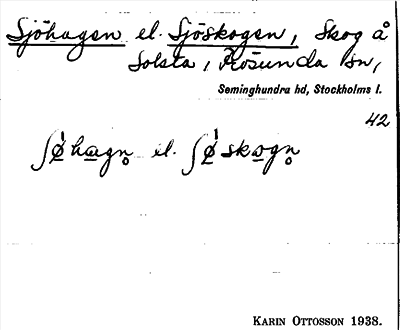 Sjöhagen el. Sjöskogen, Skog å
Solsta, Rösunda sn,
Seminghundra hd, Stockholms l.
42
ʃǿhagn̥ el. ʃǿskogn̥
KARIN OTTOSSON 1938.